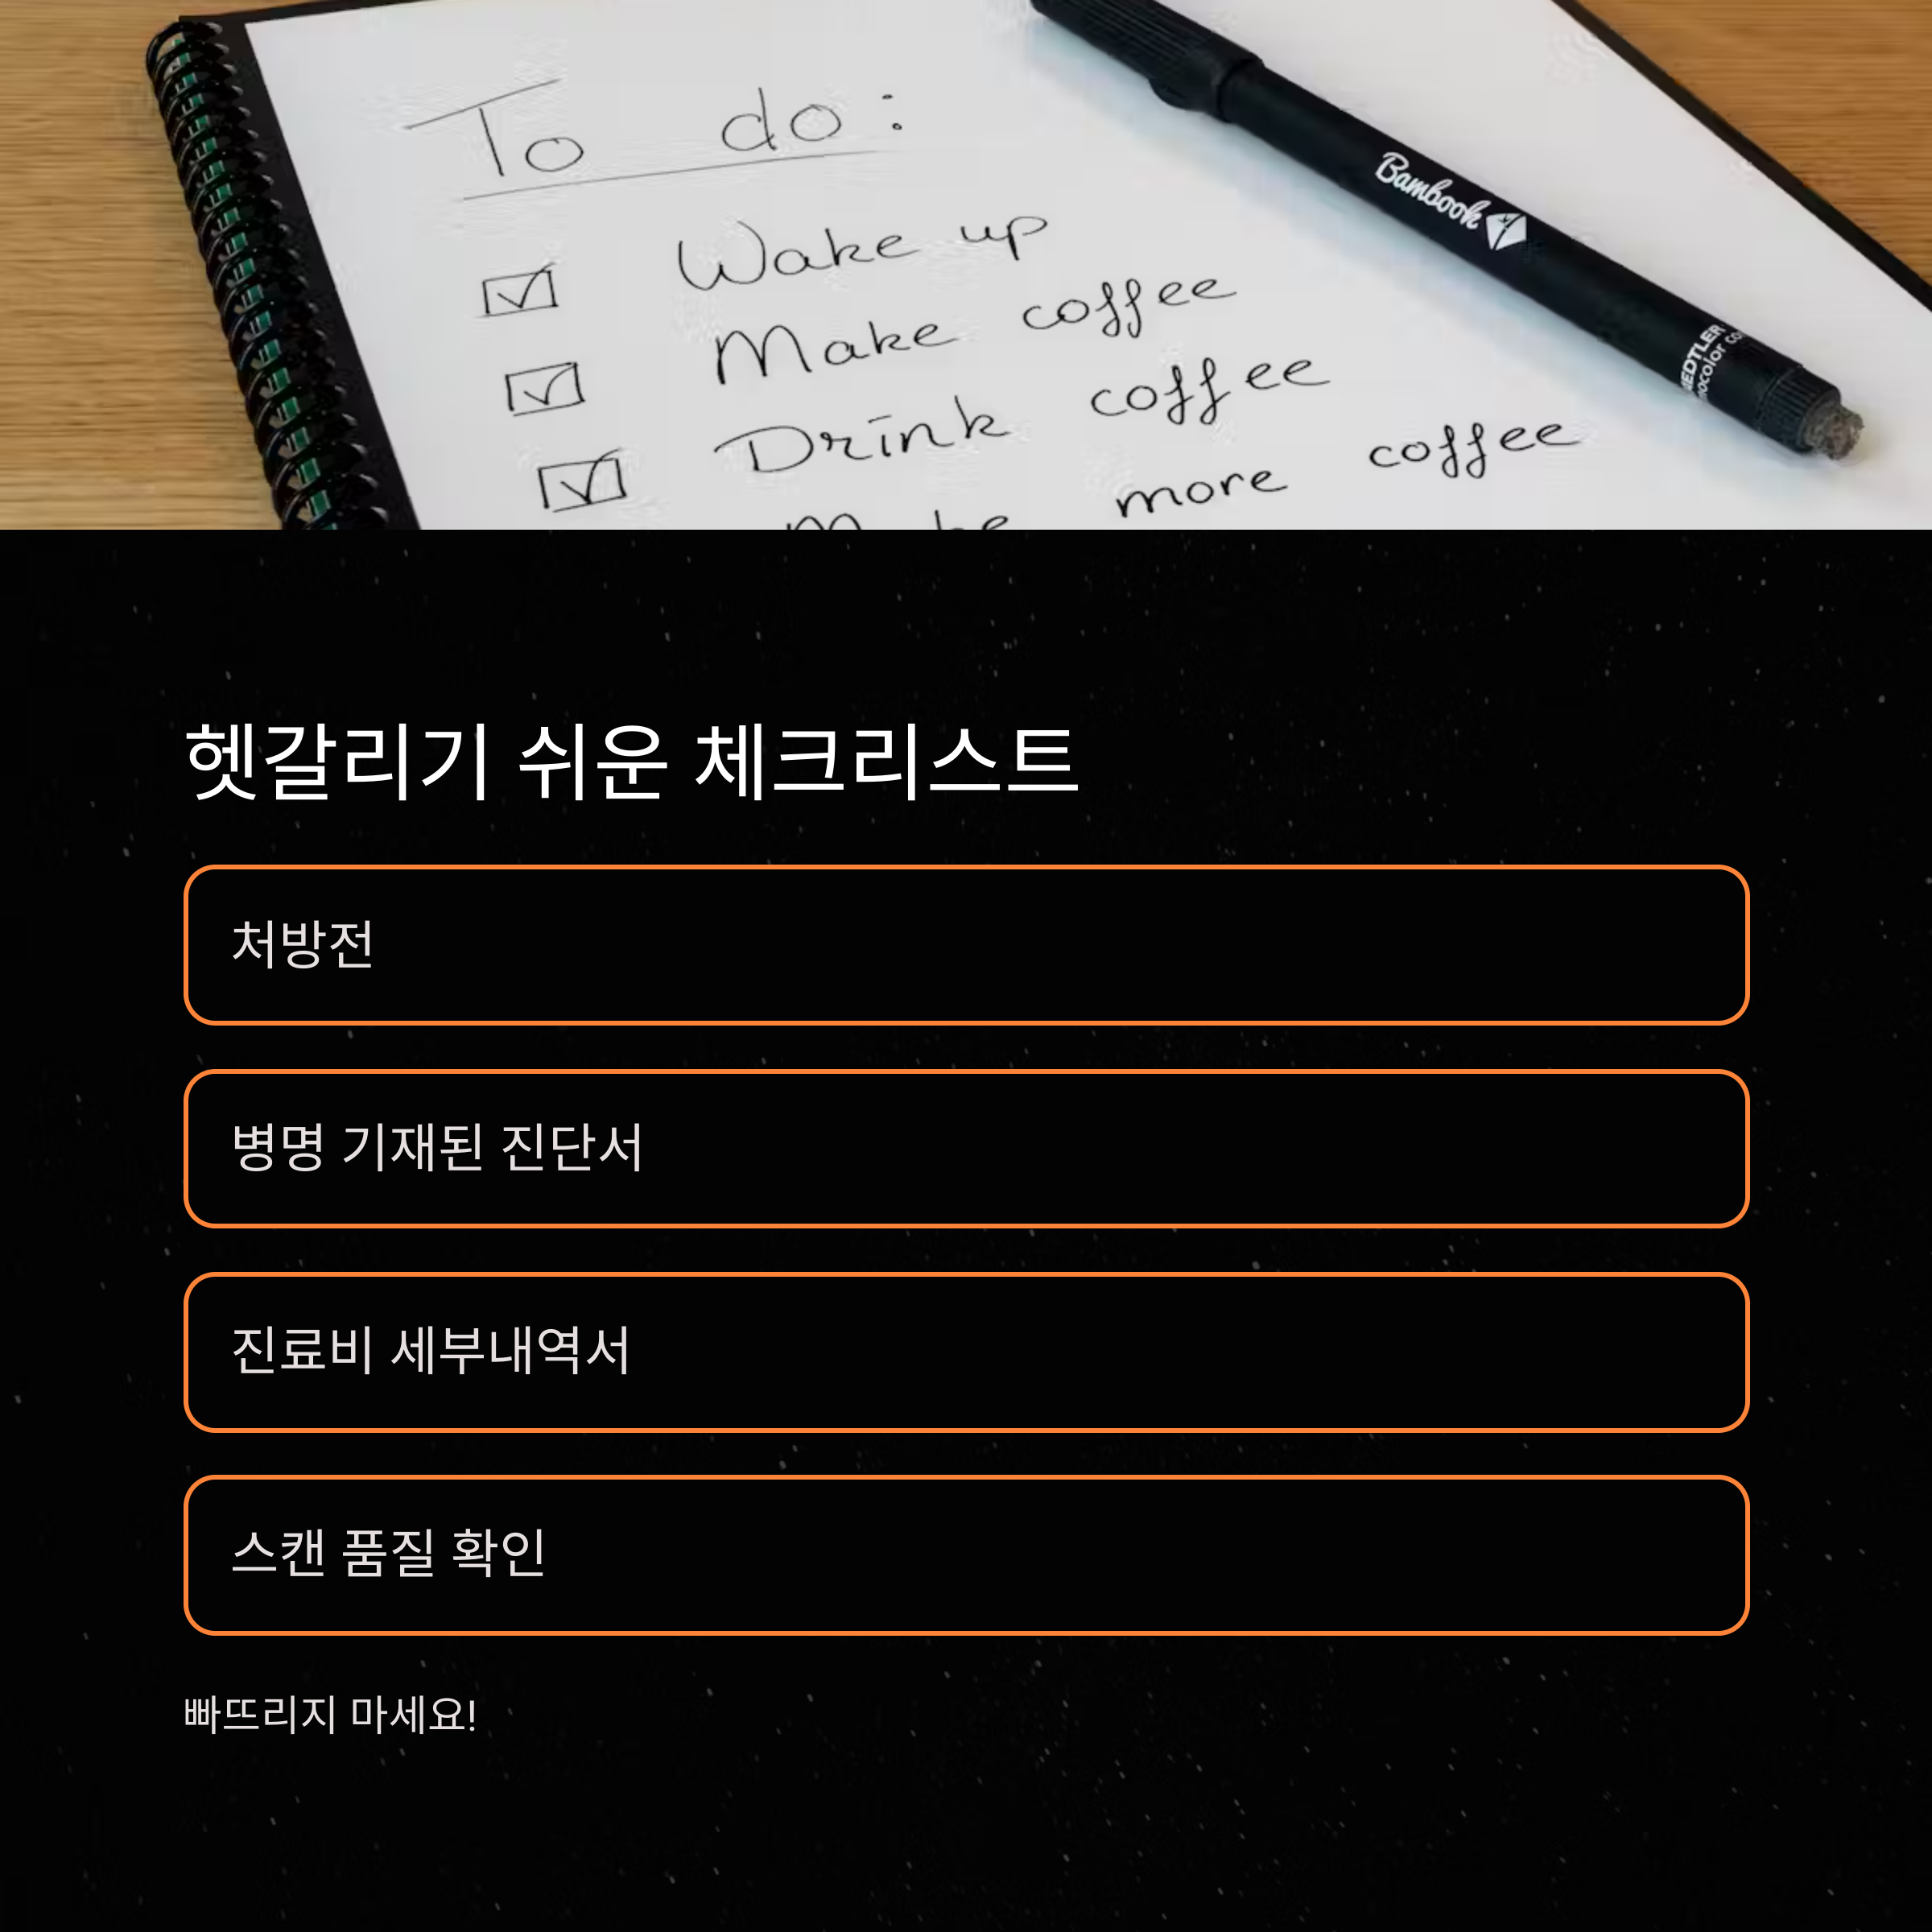 To do:
Wake up
Make coffee
Drink coffee
more coffee
Bambook
헷갈리기 쉬운 체크리스트
처방전
병명 기재된 진단서
진료비 세부내역서
스캔 품질 확인
빠뜨리지 마세요!